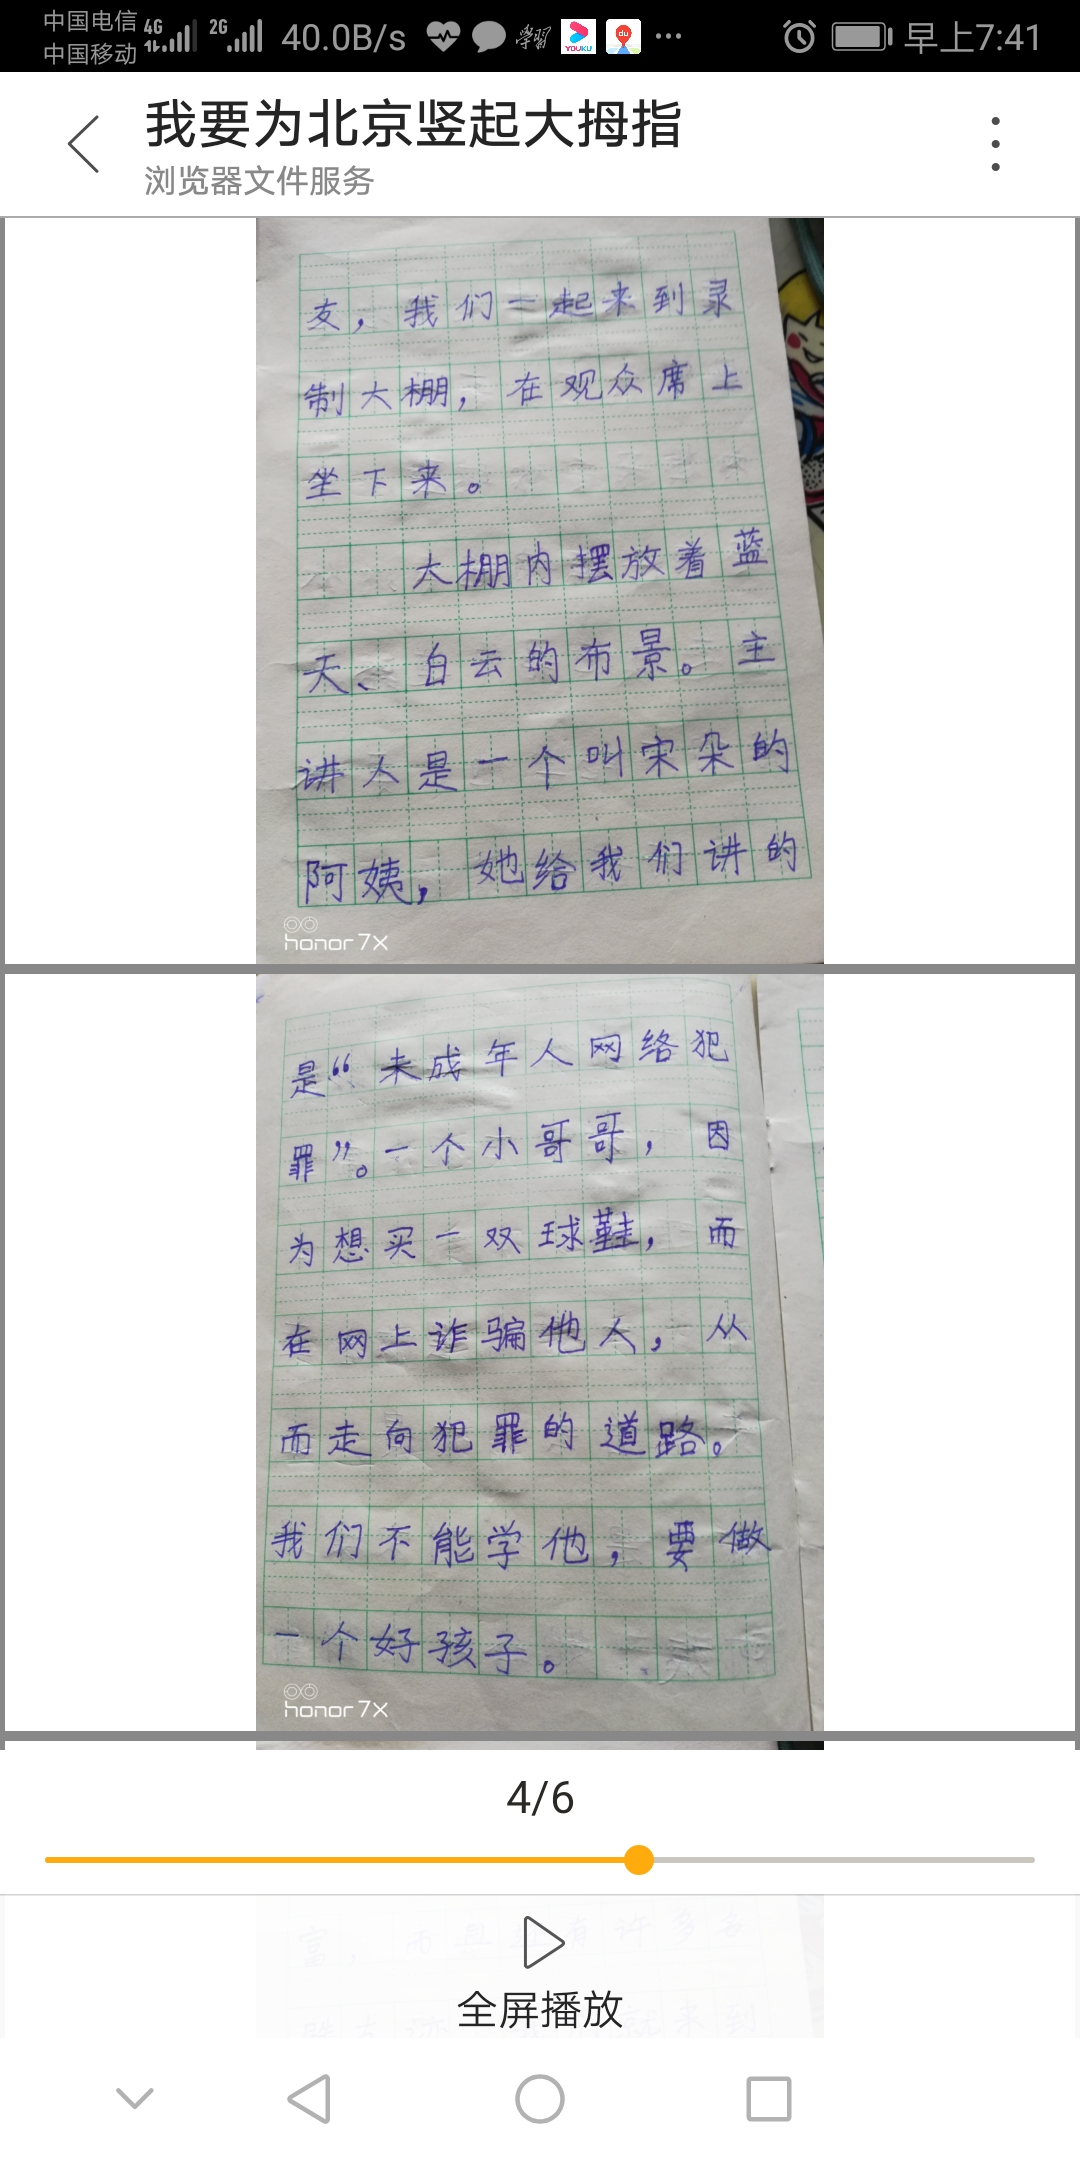 中国电信 4G 2G 40.0B/s 學習 YOUKU du ... 早上7:41
中国移动
我要为北京竖起大拇指
浏览器文件服务
友，我们一起来到录
制大棚，在观众席上
坐下来。
大棚内摆放着蓝
天、白云的布景。主
讲人是一个叫宋朵的
阿姨，她给我们讲的
honor 7X
是“未成年人网络犯
罪”。一个小哥哥，因
为想买一双球鞋，而
在网上诈骗他人，从
而走向犯罪的道路。
我们不能学他，要做
一个好孩子。
honor 7X
4/6
全屏播放